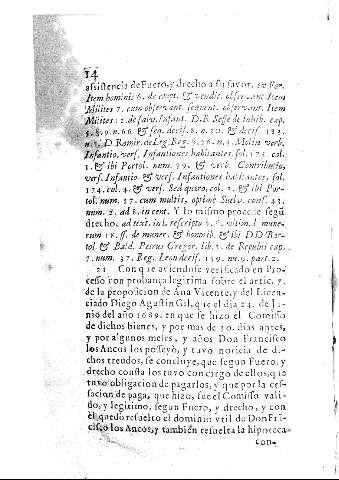 14
assistencia de Fuero, y drecho a su favor. ex For.
Item hominis 6. de empt. & vendit. observant. Item
Milites 7. cum observant. sequent. observant. Item
Milites 12. de salva Infant. D. R. Sesse de inhib. cap.
5. §. 9. n. 66. & seq. decis. 8. n. 20. & decis. 183.
n. 5. D Ramir. de Leg. Reg. §. 26. n. 3. Molin verb.
Infantio, vers. Infantiones habitantes, fol. 171. col.
1. & ibi Portol. num. 79. & verb. Contributio,
vers. Infantio. & vers. Infantiones habitantes, fol.
174. col. 4. & vers. Sed quero, col. 1. & ibi Por-
tol. num. 37. cum multis, optime Suelv. cons. 43.
num. 2. ad 8. in cent. Y lo mismo procede segũ
drecho, ad text. in l. rescripto 6. §. ultim. l. mune-
rum 18. ff. de muner. & honorib. & ibi D D Bar-
tol. & Bald. Petrus Gregor. lib. 3. de Republi cap.
7. num. 37. Reg. Leon decis. 159. n. 9. part. 2.
21 Con que aviendose verificado en Pro-
cesso con probança legitima sobre el artic. 7.
de la proposicion de Ana Vicente, y del Licen-
ciado Diego Agustin Gil, que el dia 24. de Ju-
nio del año 1689. en que se hizo el Comisso
de dichos bienes, y por mas de 30. dias antes,
y por algunos meses, y años Don Francisco
los Ancos los posseyò, y tuvo noticia de di-
chos treudos, se concluye, que segun Fuero, y
drecho consta los tuvo con cargo de ellos, que
tuvo obligacion de pagarlos, y que por la ces-
sacion de paga, que hizo, fue el Comisso vali-
do, y legitimo, segun Fuero, y drecho, y con
el quedò resuelto el dominio util de Don Fran-
cisco los Ancos, y también resuelta la hipoteca-
con-